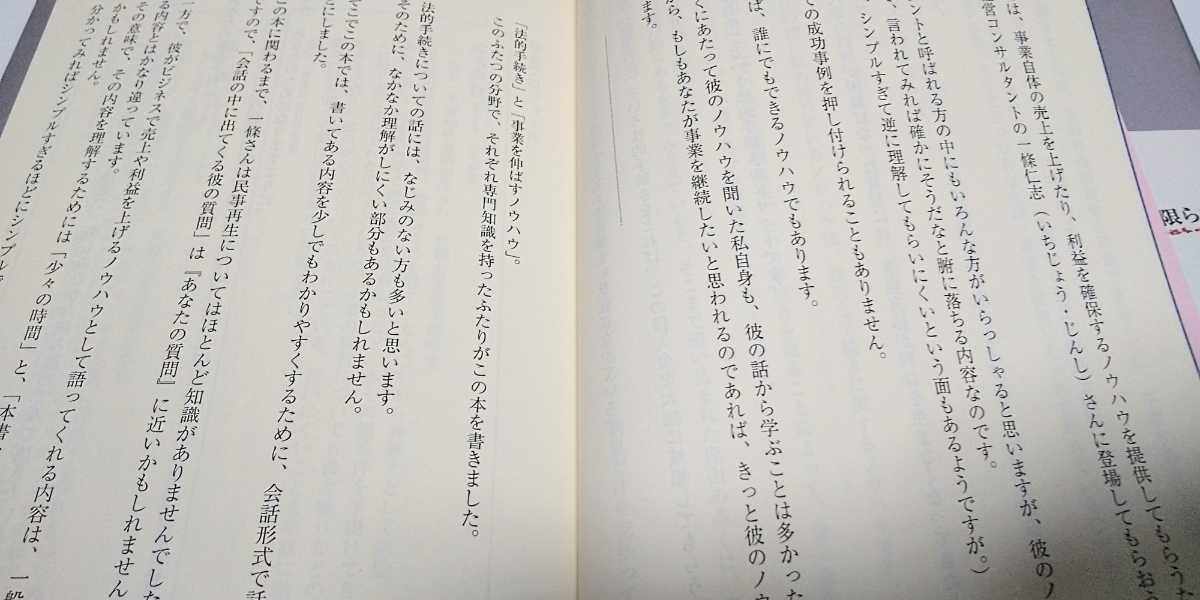 は、事業自体の売上を上げたり、利益を確保するノウハウを提供してもらうた
営コンサルタントの一條仁志（いちじょう・じんし）さんに登場してもらおう
ントと呼ばれる方の中にもいろんな方がいらっしゃると思いますが、彼のノ
、言われてみれば確かにそうだなと腑に落ちる内容なのです。
シンプルすぎて逆に理解してもらいにくいという面もあるようですが。）
ての成功事例を押し付けられることもありません。
ば、誰にでもできるノウハウでもあります。
くにあたって彼のノウハウを聞いた私自身も、彼の話から学ぶことは多かった
から、もしもあなたが事業を継続したいと思われるのであれば、きっと彼のノウ
ます。
「法的手続き」と「事業を伸ばすノウハウ」。
このふたつの分野で、それぞれ専門知識を持ったふたりがこの本を書きました。
法的手続きについての話には、なじみのない方も多いと思います。
そのために、なかなか理解がしにくい部分もあるかもしれません。
そこでこの本では、書いてある内容を少しでもわかりやすくするために、会話形式で話
にしました。
この本に関わるまで、一條さんは民事再生についてはほとんど知識がありませんでした
ですので、「会話の中に出てくる彼の質問」は『あなたの質問』に近いかもしれません
一方で、彼がビジネスで売上や利益を上げるノウハウとして語ってくれる内容は、一般
る内容とはかなり違っています。
その意味で、その内容を理解するためには「少々の時間」と、「本書
かもしれません。
分かってみればシンプルすぎるほどにシンプル
限ら